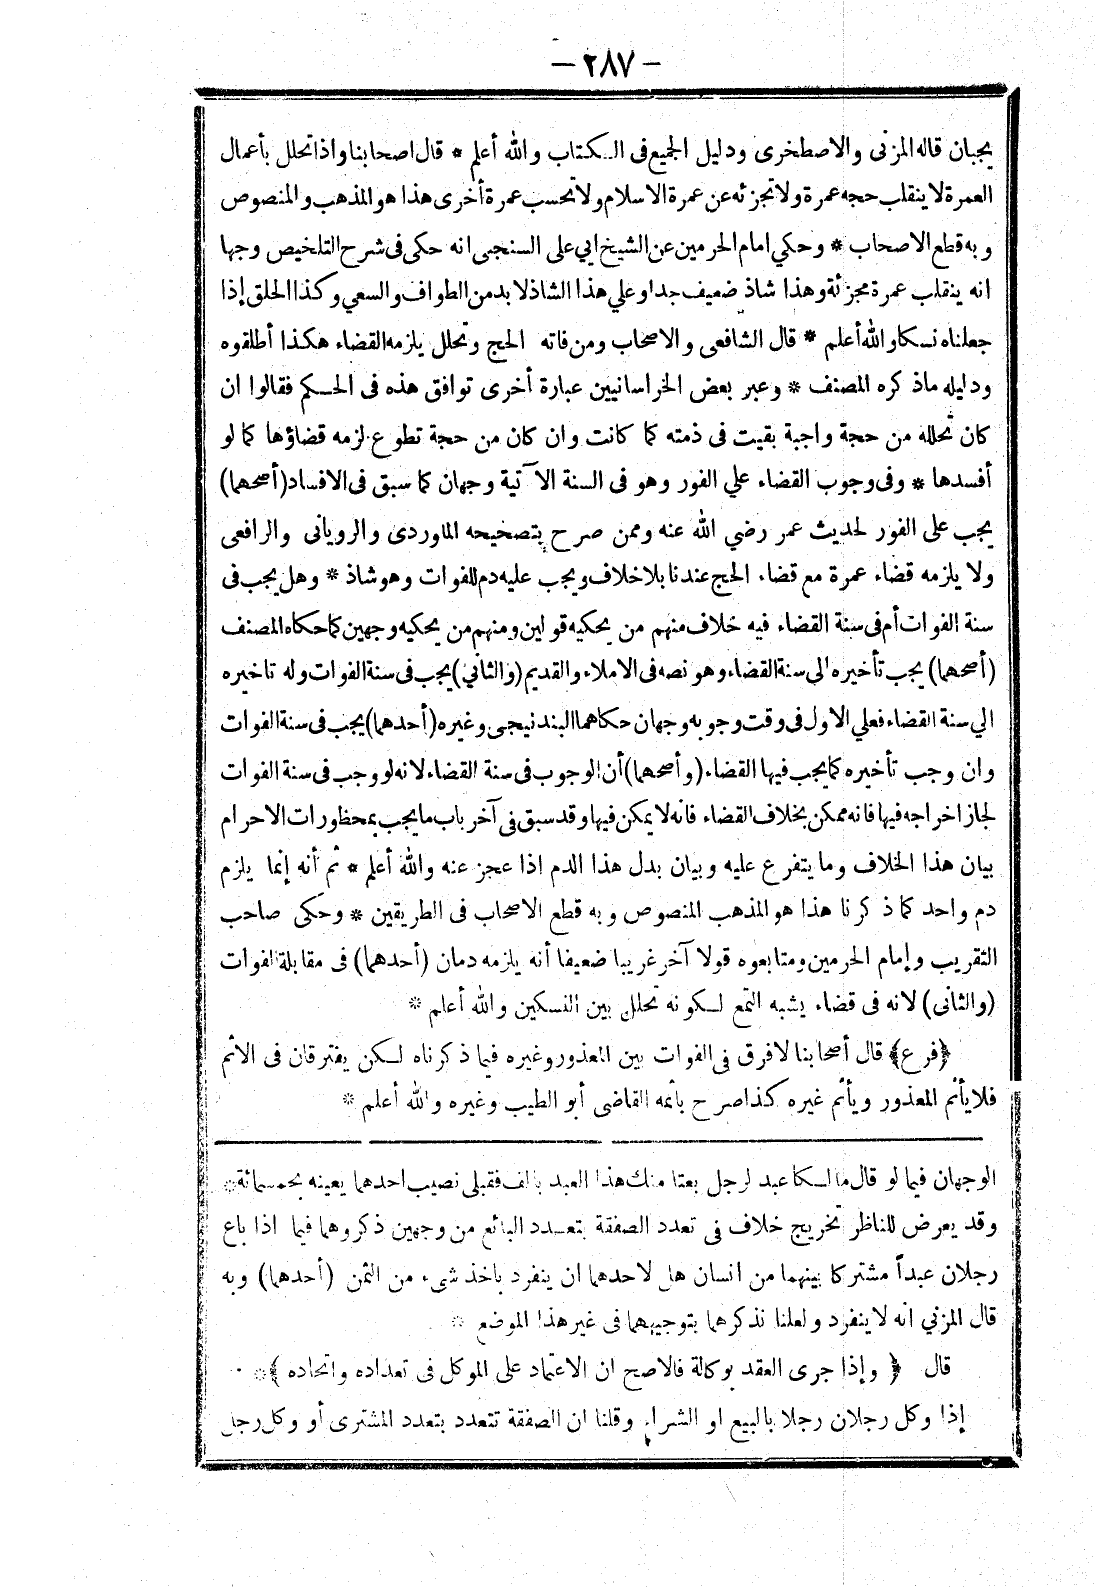 — ٢٨٧ —
يجبان قاله المزنى والاصطخرى ودليل الجميع فى الكتاب والله أعلم * قال اصحابنا واذا تحلل بأعمال
العمرة لا ينقلب حجه عمرة ولا تجزئه عن عمرة الاسلام ولا تحسب عمرة أخرى هذا هو المذهب والمنصوص
وبه قطع الاصحاب * وحكي امام الحرمين عن الشيخ ابي على السنجى انه حكى فى شرح التلخيص وجها
انه ينقلب عمرة مجزئة وهذا شاذ ضعيف جدا وعلي هذا الشاذ لا بد من الطواف والسعي وكذا الحلق إذا
جعلناه نسكا والله أعلم * قال الشافعى والاصحاب ومن فاته الحج وتحلل يلزمه القضاء هكذا أطلقوه
ودليله ما ذكره المصنف * وعبر بعض الخراسانيين عبارة أخرى توافق هذه فى الحكم فقالوا ان
كان تحلله من حجة واجبة بقيت فى ذمته كما كانت وان كان من حجة تطوع لزمه قضاؤها كما لو
أفسدها * وفى وجوب القضاء علي الفور وهو فى السنة الآتية وجهان كما سبق فى الافساد (أصحهما)
يجب على الفور لحديث عمر رضي الله عنه وممن صرح بتصحيحه الماوردى والرويانى والرافعى
ولا يلزمه قضاء عمرة مع قضاء الحج عندنا بلا خلاف ويجب عليه دم للفوات وهو شاذ * وهل يجب فى
سنة الفوات أم فى سنة القضاء فيه خلاف منهم من يحكيه قولين ومنهم من يحكيه وجهين كما حكاه المصنف
(أصحهما) يجب تأخيره الي سنة القضاء وهو نصه فى الاملاء والقديم (والثاني) يجب فى سنة الفوات وله تاخيره
الي سنة القضاء فعلي الاول فى وقت وجوبه وجهان حكاهما البندنيجى وغيره (أحدهما) يجب فى سنة الفوات
وان وجب تأخيره كما يجب فيها القضاء (وأصحهما) أن الوجوب فى سنة القضاء لانه لو وجب فى سنة الفوات
لجاز اخراجه فيها فانه ممكن بخلاف القضاء فانه لا يمكن فيها وقد سبق فى آخر باب ما يجب بمحظورات الاحرام
بيان هذا الخلاف وما يتفرع عليه وبيان بدل هذا الدم اذا عجز عنه والله أعلم * ثم أنه إنما يلزم
دم واحد كما ذكرنا هذا هو المذهب المنصوص وبه قطع الاصحاب فى الطريقين * وحكى صاحب
التقريب وإمام الحرمين ومتابعوه قولا آخر غريبا ضعيفا أنه يلزمه دمان (أحدهما) فى مقابلة الفوات
(والثانى) لانه فى قضاء يشبه التمتع لكونه تحلل بين النسكين والله أعلم *
﴿فرع﴾ قال أصحابنا لا فرق فى الفوات بين المعذور وغيره فيما ذكرناه لكن يفترقان فى الاثم
فلا يأثم المعذور ويأثم غيره كذا صرح باثمه القاضى أبو الطيب وغيره والله أعلم *
الوجهان فيما لو قال مالكا عبد لرجل بعتا منك هذا العبد بالف فقبل نصيب احدهما بعينه بخمسمائة *
وقد يعرض للناظر تخريج خلاف فى تعدد الصفقة بتعدد البائع من وجهين ذكروهما فيما اذا باع
رجلان عبداً مشتركا بينهما من انسان هل لاحدهما ان ينفرد باخذ شىء من الثمن (أحدهما) وبه
قال المزني انه لا ينفرد ولعلنا نذكرهما بتوجيههما فى غير هذا الموضع *
قال ﴿ وإذا جرى العقد بوكالة فالاصح ان الاعتماد على الموكل فى تعداده واتحاده ﴾ *
إذا وكل رجلان رجلا بالبيع او الشراء وقلنا ان الصفقة تتعدد بتعدد المشترى أو وكل رجل